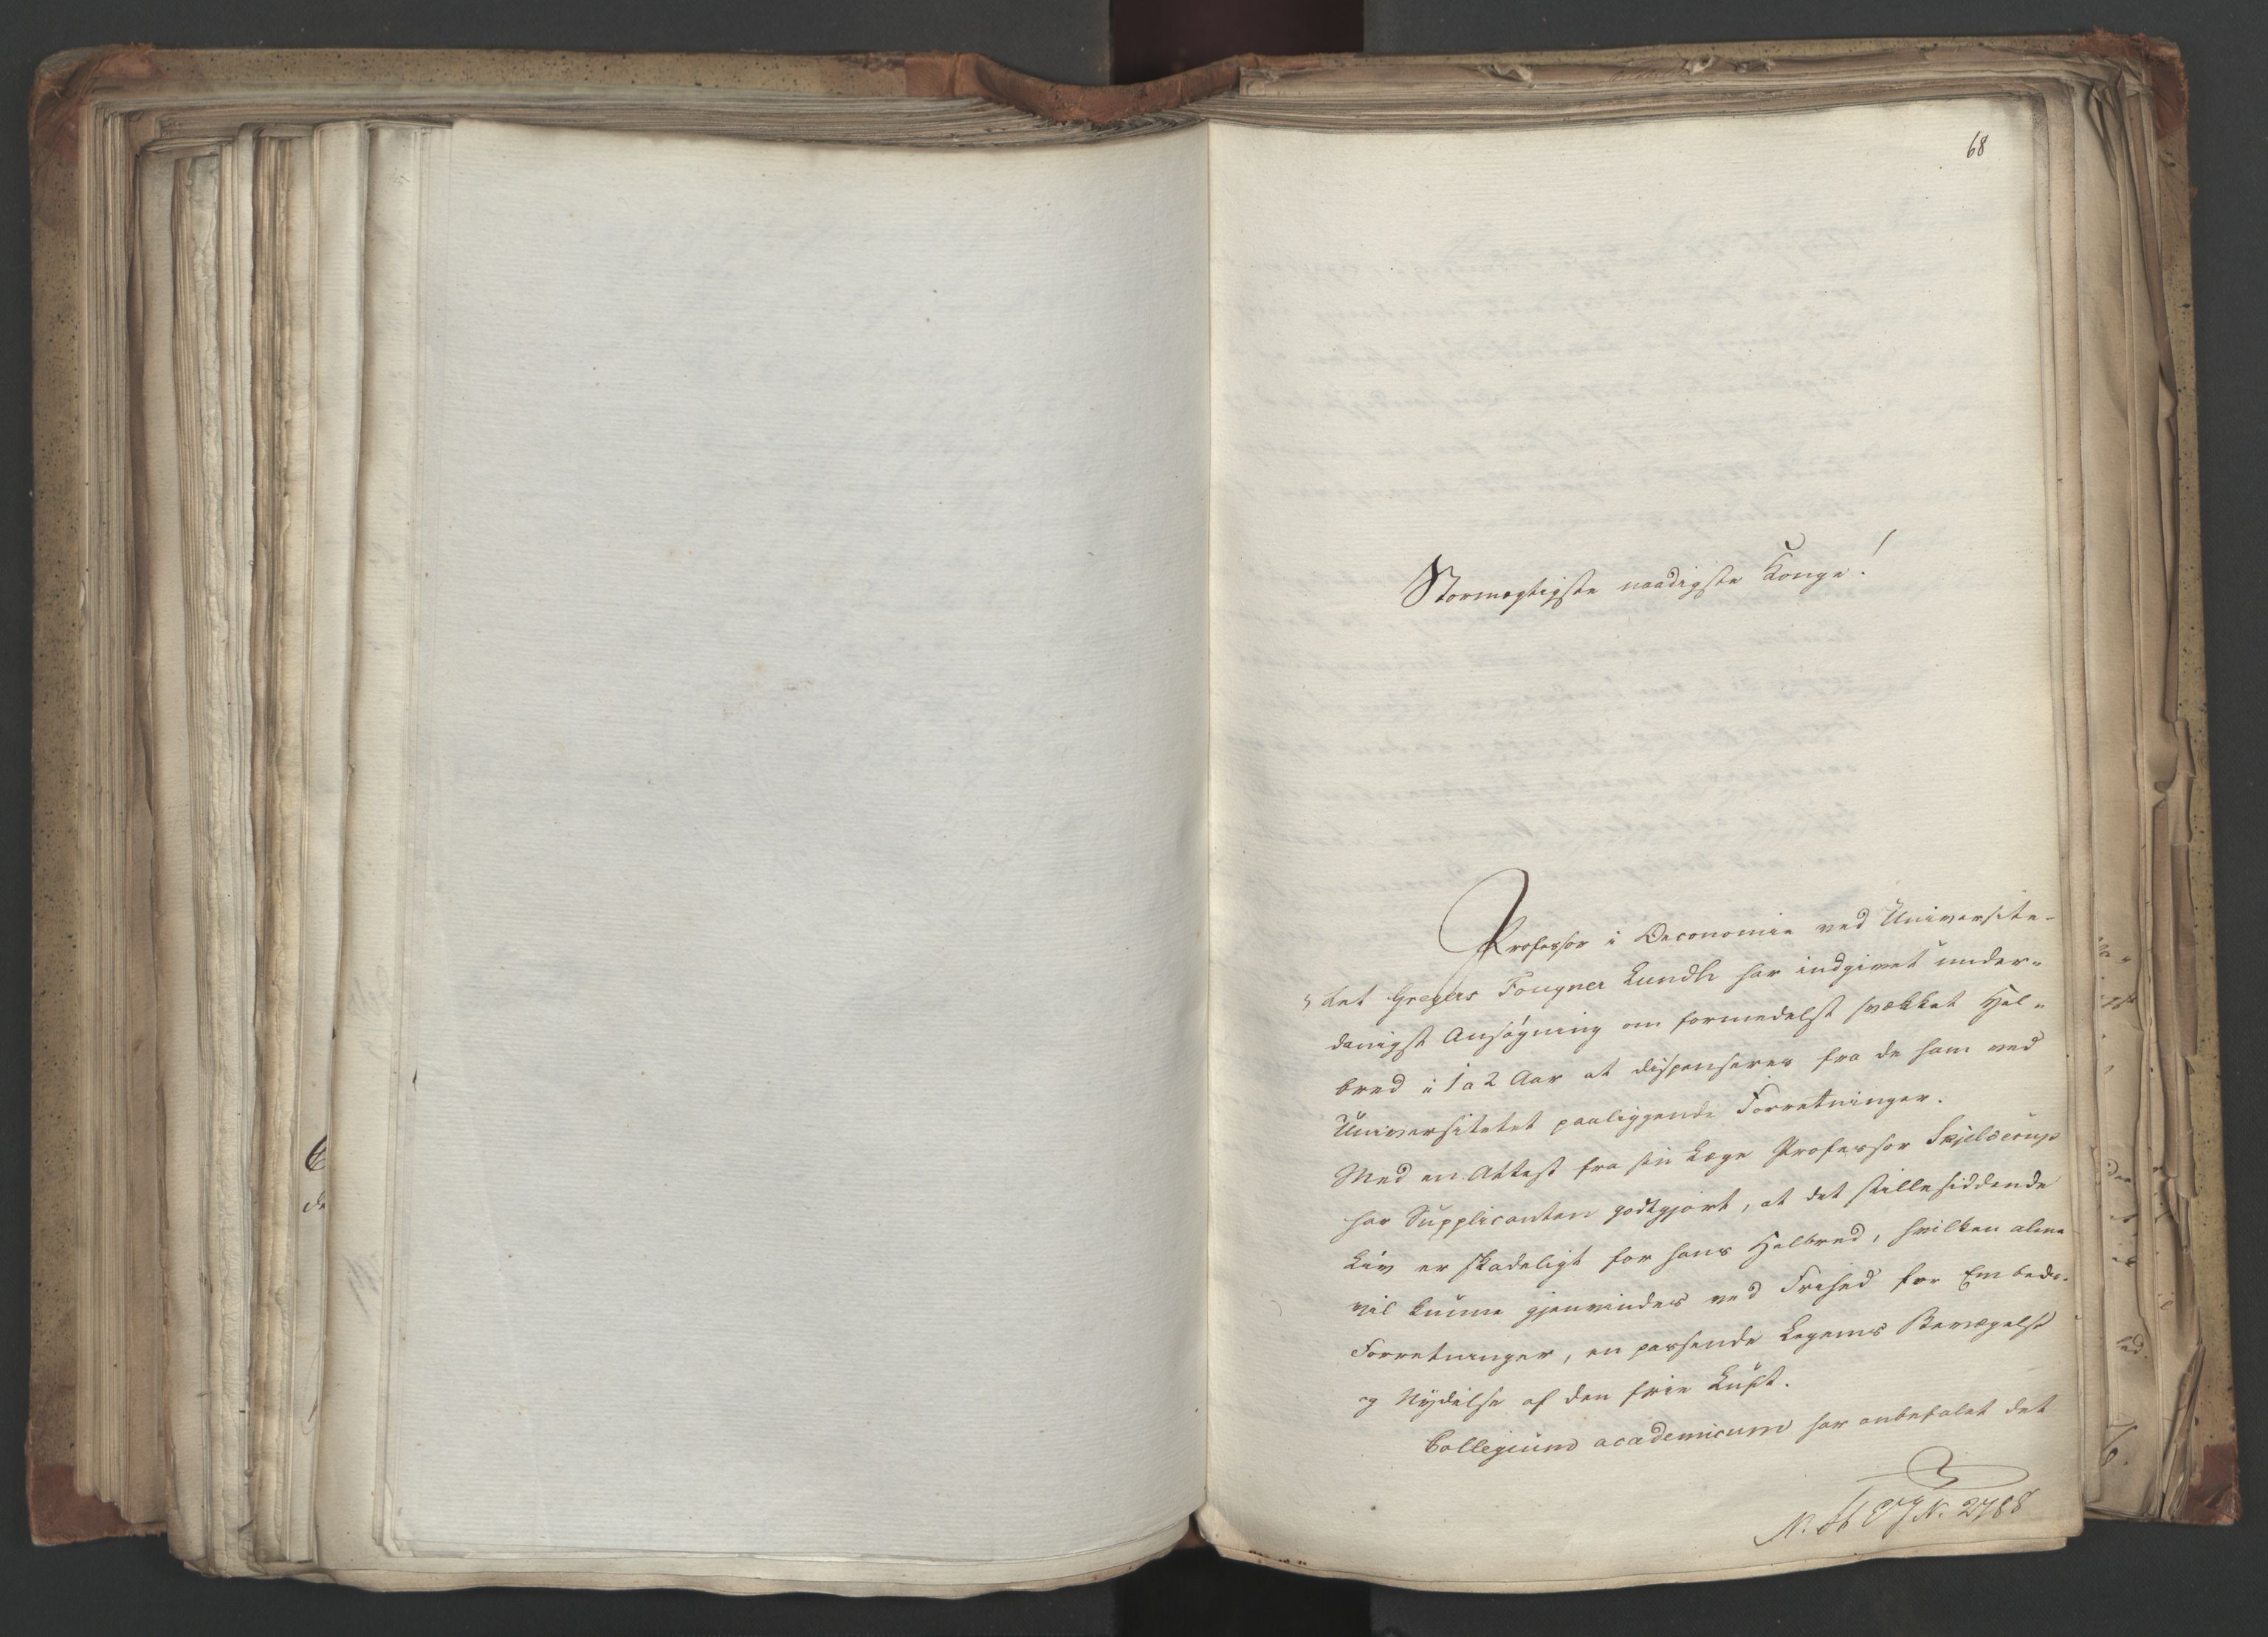 68
Stormægtigste naadigste Konge!
Professor i Oeconomie ved Universite-
tet Gregers Fougner Lundh har indgivet under-
danigst Ansøgning om formedelst svækket Hel-
bred i 1 a 2 Aar at dispenseres fra de ham ved
Universitetet paaliggende Forretninger.
Med en Attest fra sin Læge Professor Skjelderup
har Supplicanten godtgjort, at det stillesiddende
Liv er skadeligt for hans Helbred, hvilken alene
vil kunne gjenvindes ved Frihed for Embeds-
Forretninger, en passende Legems Bevægelse
og Nydelse af den frie Luft.
Collegium academicum har anbefalet det
N. 2788